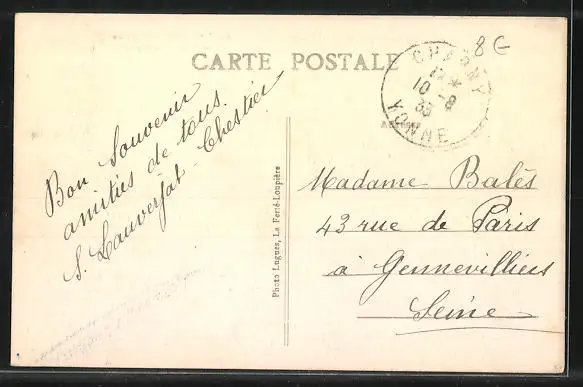 CARTE POSTALE
8 €
CHARNY
10-8
33
YONNE
Bon Souvenir
amitiés de tous.
S. Lauverjat-Chestier
Photo Lugues, La Ferté-Loupière
Madame Balès
43 rue de Paris
à Gennevilliers
Seine